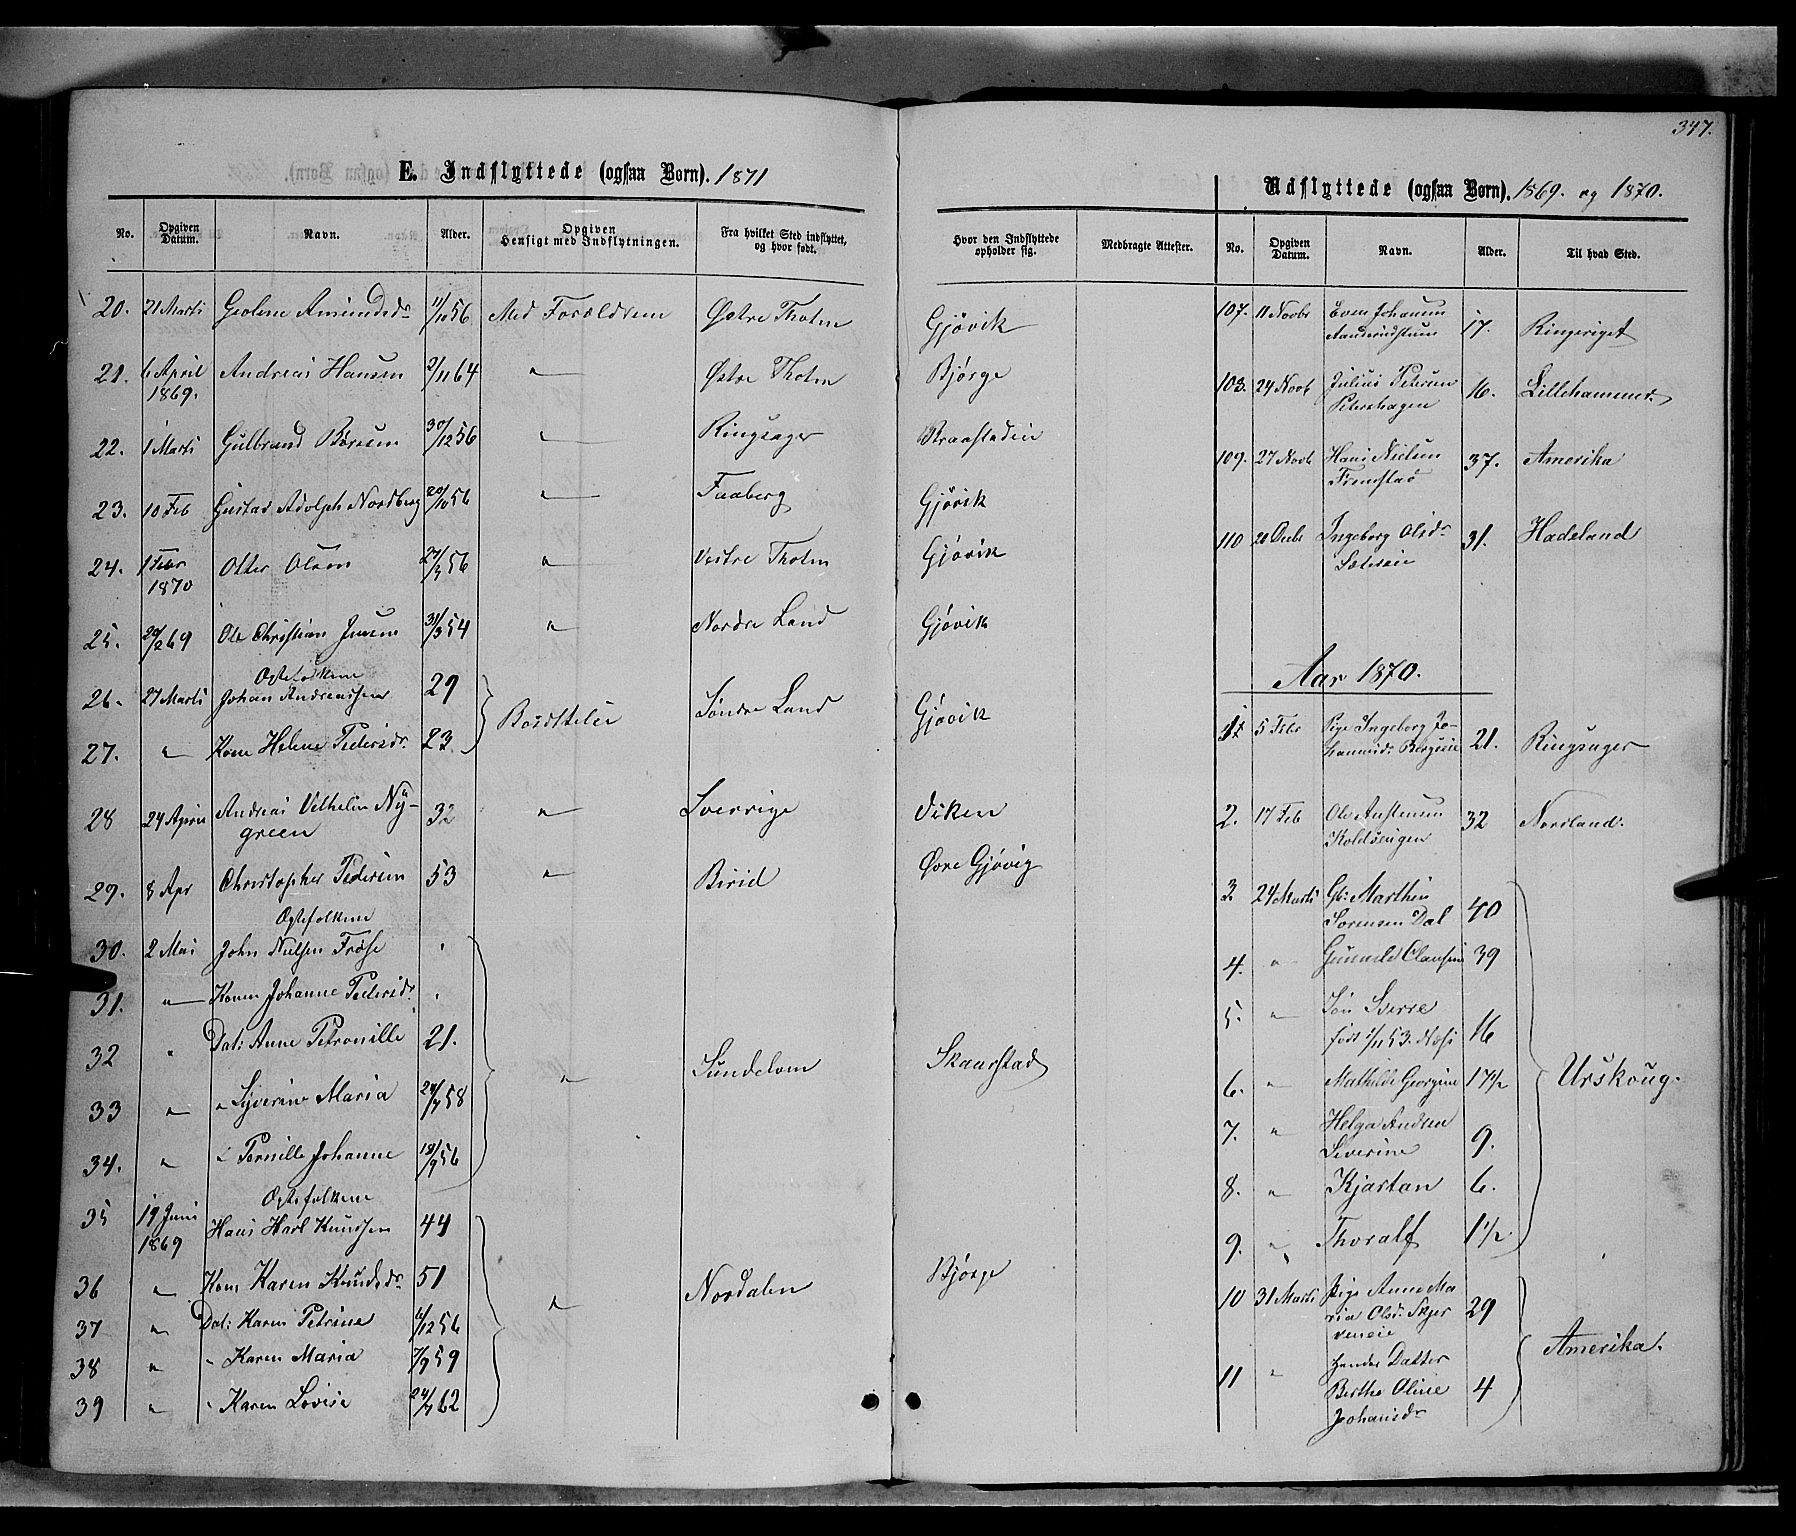 347.
E. Indflyttede (ogsaa Børn). 1871
No. Opgiven Datum. Navn. Alder. Opgiven Hensigt med Indflytningen. Fra hvilket Sted indflyttet, og hvor født. Hvor den Indflyttede opholder sig. Medbragte Attester.
20. 21 Marts Amundsdr 11/10 56 Med Forældrene Østre Thoten Gjövik
21. 6 April 1869. Andreas Hansen 2/11 64 " Østre Thoten Bjørge
22. 1 Marts Gulbrand 30/12 56 " Ringsager Braastadeie
23. 10 Feb Gustav Adolph Nordberg 20/10 56 " Faaberg Gjövik
24. 1 Febr 1870 Otter Olsen 27/3 56 " Vestre Thoten Gjövik
25. 20/2 69 Ole Christian Jensen 31/3 54 " Nordre Land Gjövik
Ægtefolkene
26. 27 Marts Johan Andreassen 29 Søndre Land Gjövik
27. " Kone Helene Pedersdr. 23.
28 24 April Andreas Vilhelm Ny-
green 32 " Sverrige Viken
29. 8 Apr Christopher Pedersen 53 " Birid Øvre Gjøvig
Ægtefolkene
30. 2 Mai John Nielsen
31. " Konen Johanne Pedersdr.
32 " Dat: Anne Petronille 21. " Skaarstad
33 " " Syverine Maria 24/7 58
34. " " Pernille Johanne 18/9 56
Ægtefolkene
35 19 Juni 1869 Hans Karl Knudsen 44
36 " Kone Karen Knudsdr 51 " Nordalen Bjørge
37 " Dat: Karen Petrine 11/12 56
38 " " Karen Maria 7/9 59
39 " " Karen Lovise 24/7 62
Udflyttede (ogsaa Børn). 1869. og 1870.
No. Opgiven Datum. Navn. Alder. Til hvad Sted.
107. 11 Novbr Even Johannes 17. Ringeriget
103. 24 Novb Julius Petersen
Petershagen 16. Lillehammer
109. 27 Novb Hans Nielsen
Fremstad 37. Amerika
110 20 Decbr Ingeborg Olsdr
Sætereie 31. Hadeland
Aar 1870.
1 5 Febr Pige Ingeborg Jo-
hannesdr Bergseie 21. Ringsager
2. 17 Feb Ole Austensen
Koldsengen 32 Nordland.
3. 24 Marts Gb: Marthin
Sorensen Dal 40
4. " Gunnild Clausen 39
5. " Søn Sverre
født 1/11 53. Næs 16
6. " Mathilde Georgine 17 1/2 Urskoug.
7. " Helga Andrea
Severine 9.
8. " Kjartan 6.
9. " Thoralf 1 1/2
10 31 Marts Pige Anne Ma
ria Olsdr Skjer
veneie 29
Amerika.
11 " hendes Datter
Berthe Oline
Johansdr 4